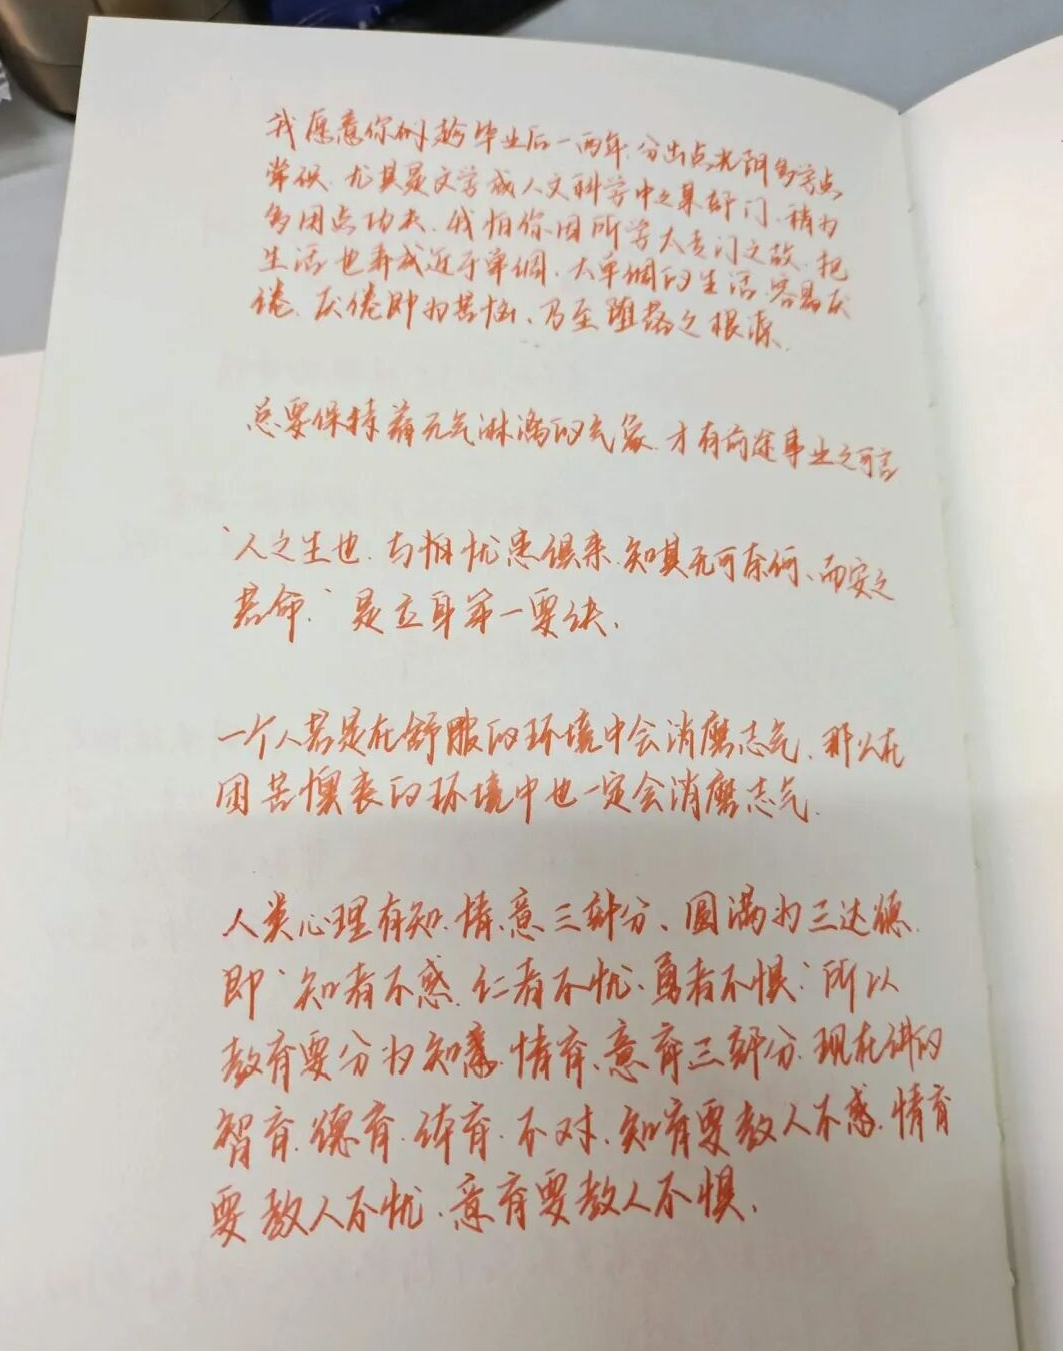 我愿意你们趁毕业后一两年,分出点光阴多学点
常识,尤其是文学或人文科学中之某部门,稍为
多用点功夫,我怕你因所学太专门之故,把
生活也弄成近于单调,太单调的生活,容易厌
倦,厌倦即为苦恼、乃至堕落之根源.
总要保持着元气淋漓的气象,才有前途事业之可言
“人之生也,与怕忧患俱来,知其无可奈何、而安之
若命.”是立身第一要诀、
一个人若是在舒服的环境中会消磨志气,那么在
困苦懊丧的环境中也一定会消磨志气.
人类心理有知.情.意三部分、圆满为三达德.
即“知者不惑.仁者不忧、勇者不惧”所以
教育要分为知 情育、意育三部分.现在讲的
智育.德育.体育.不对.知育要教人不惑.情育
要教人不忧.意育要教人不惧.